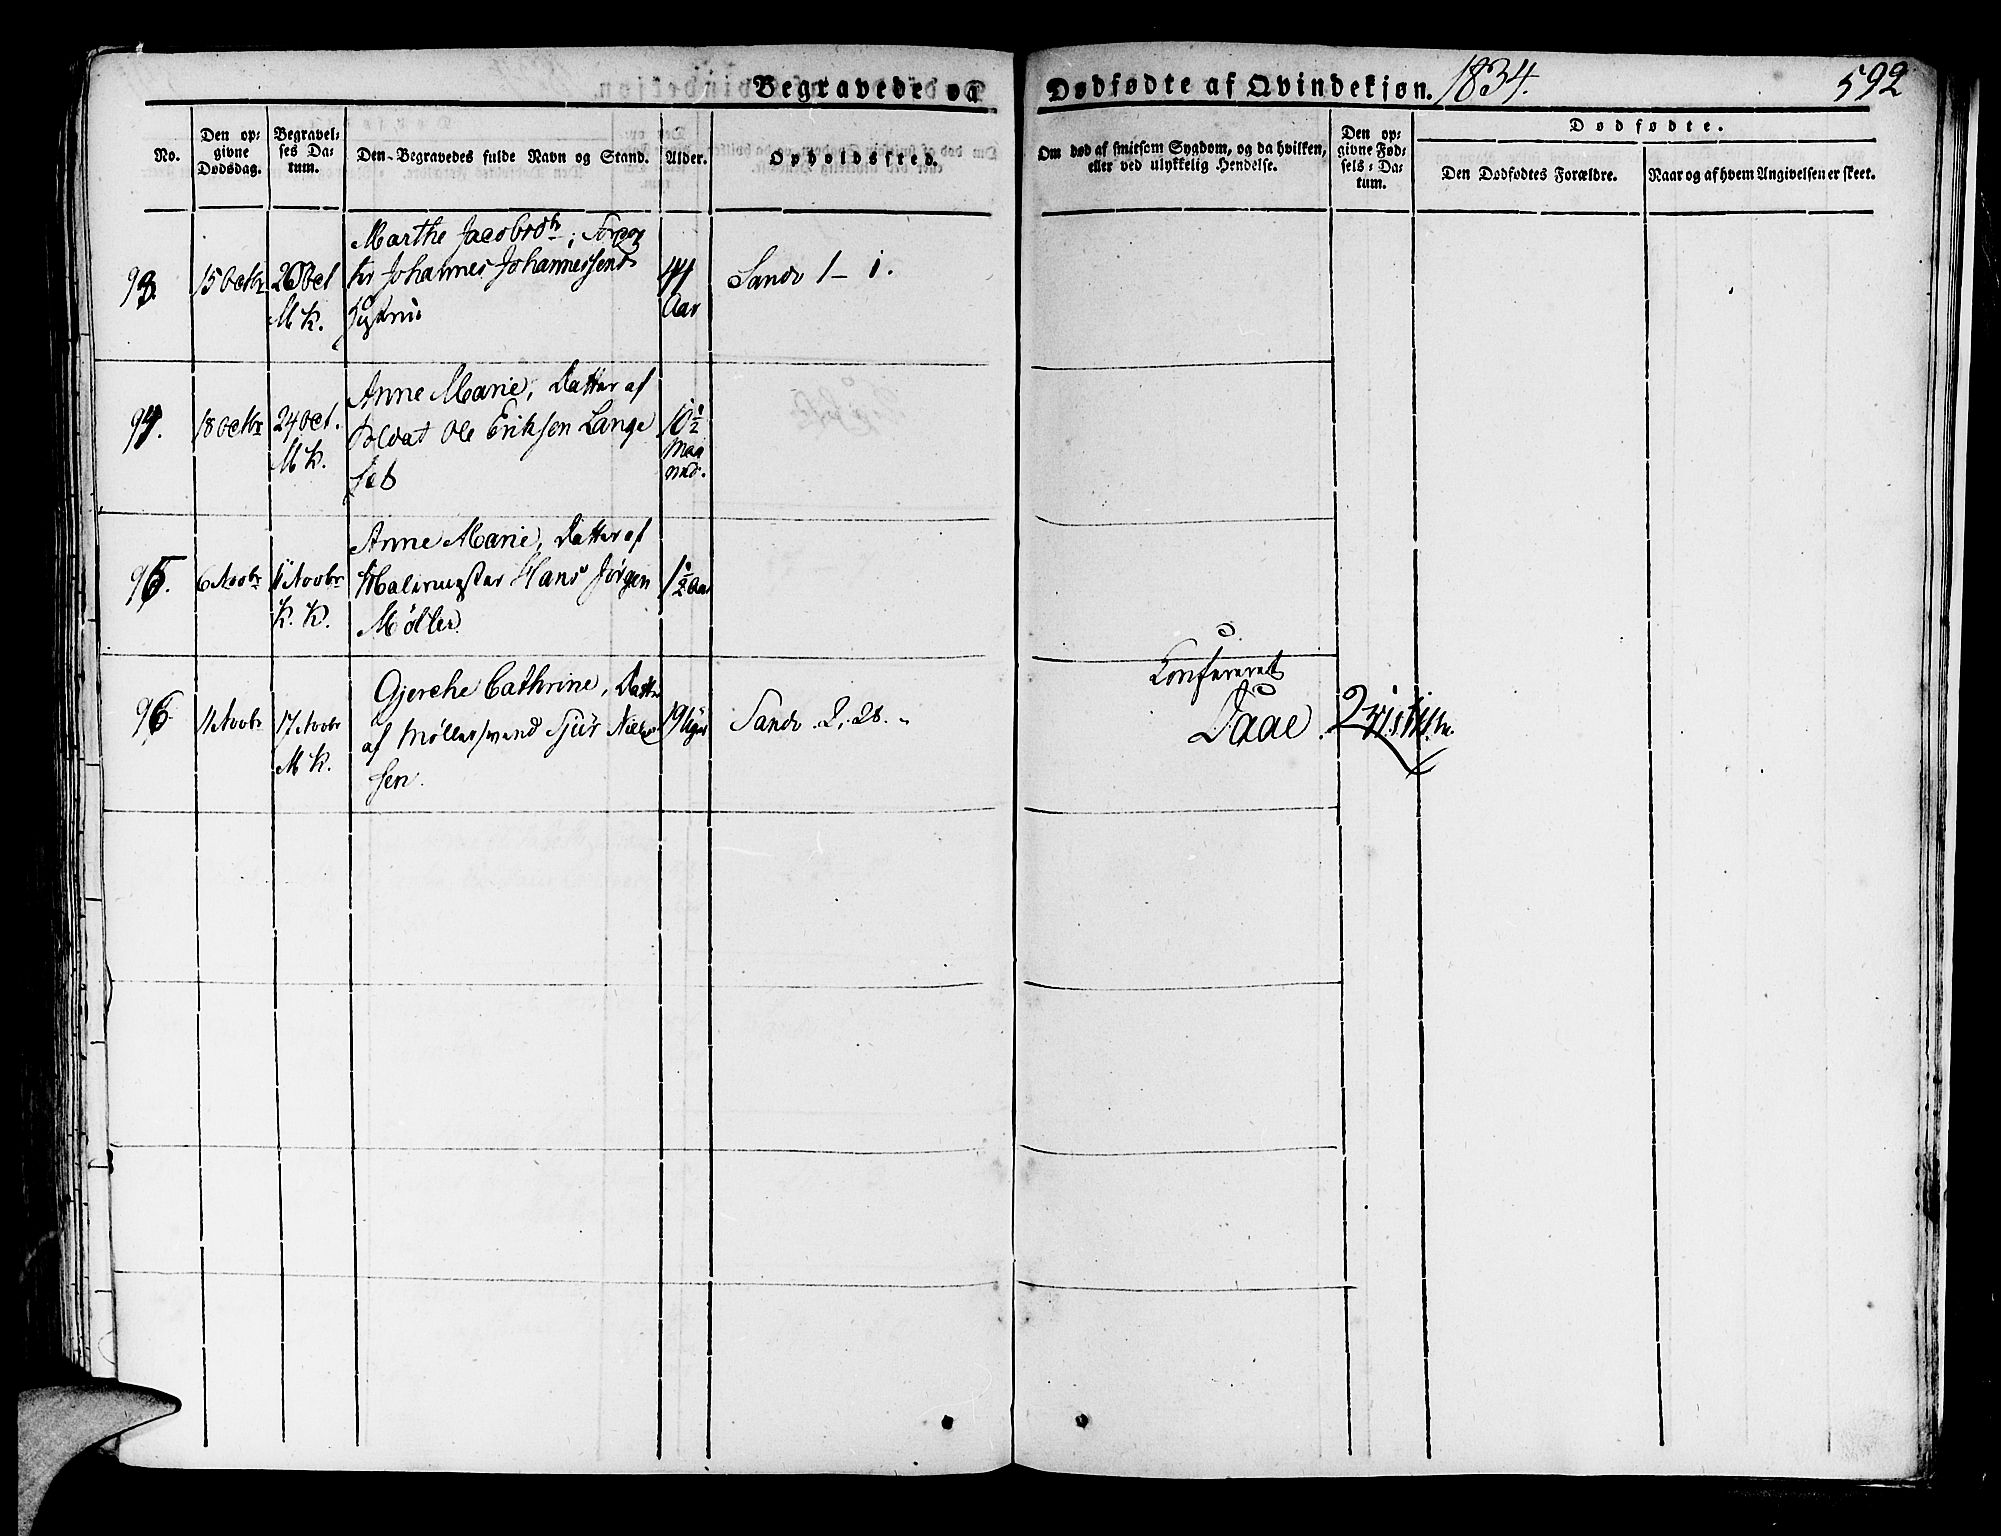 Begravede og Dødfødte af Qvindekjøn. 1834. 592
No.
Den op-
givne
Dødsdag.
Begravel-
ses Da-
tum.
Den Begravedes fulde Navn og Stand.
Alder.
Opholdssted.
Om død af smitsom Sygdom, og da hvilken,
eller ved ulykkelig Hendelse.
Den op-
givne Fød-
sels-Da-
tum.
Dødfødte.
Den Dødfødtes Forældre.
Naar og af hvem Angivelsen er skeet.
93. 15 Octbr 26 Oct
M K.
Marthe Jacobsdtr,
Johannes Johannessens
44
Aar
Sandv 1 - 1.
94. 18 Octbr 24 Oct.
M K.
Anne Marie, Datter af
Soldat Ole Eriksen Lange
sæb
10 1/2
Maa
ned.
95. 6 Novbr 11 Novbr
K. K.
Anne Marie, Datter af
Malermester Hans Jørgen
Møller.
1 1/2 Aar
96. 11 Novbr 17 Novbr
M K.
Gjerche Cathrine, Datter
af Møllersvend Sjur Niel
sen.
19 Uger
Sandv. 2. 28.
Confereret
Daae.